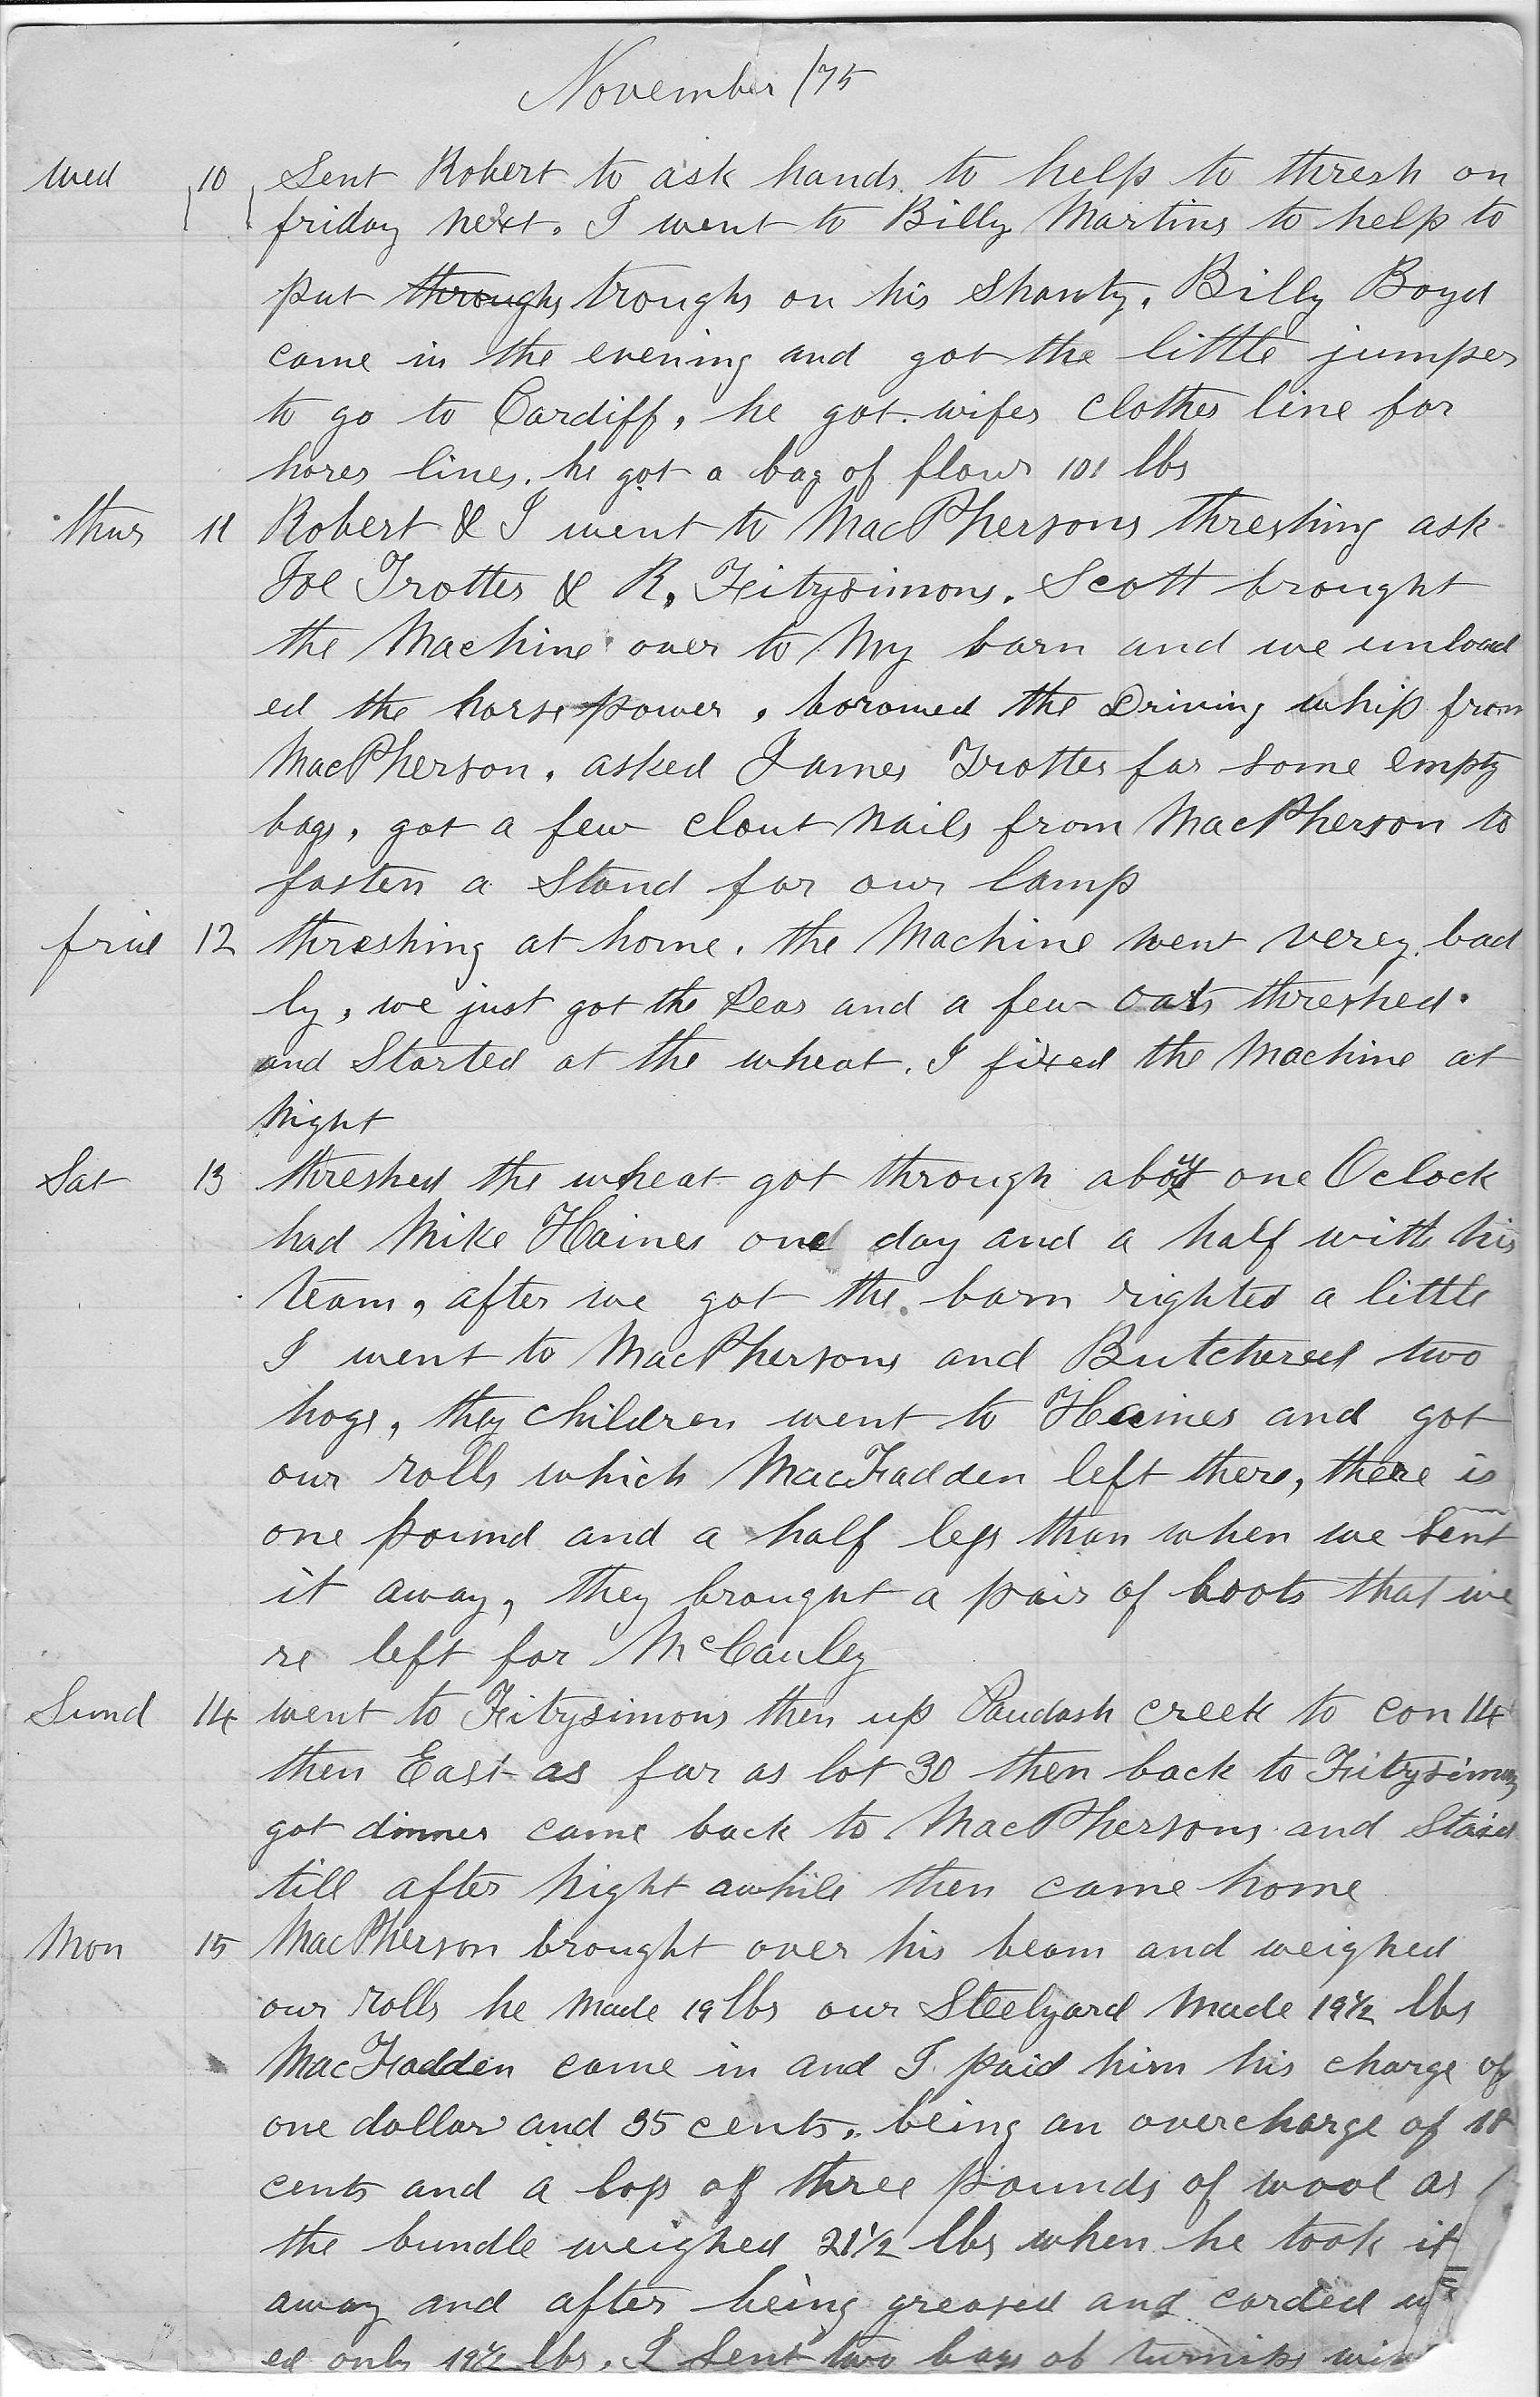 November /75
Wed 10 Sent Robert to ask hands to help to thresh on
friday next. I went to Billy Martins to help to
put throughs troughs on his Shanty. Billy Boyd
came in the evening and got the little jumper
to go to Cardiff, he got wifes clothes line for
hores lines. he got a bag of flour 101 lbs
thurs 11 Robert & I went to MacPhersons threshing ask
Joe Trotter & R, Fitzsimons. Scott brought
the Machine over to My barn and we unload
ed the horse power, borowed the Driving whip from
MacPherson. asked James Trotter for some empty
bags, got a few clout nails from MacPherson to
fasten a Stand for our lamp
frid 12 threshing at home. the Machine went verey bad
ly, we just got the Peas and a few oats threshed.
and Started at the wheat. I fixed the Machine at
Night
Sat 13 threshed the wheat got through about one Oclock
had Mike Haines one day and a half with his
team, after we got the barn righted a little
I went to MacPhersons and Butchered two
hogs, they children went to Haines and got
our rolls which MacFadden left there, there is
one pound and a half less than when we Sent
it away, they brought a pair of boots that we
re left for McCauley
Sund 14 went to Fitzsimons then up Paudash creek to con 14
then East as far as lot 30 then back to Fitzsimons
got dinner came back to MacPhersons and Staid
till after Night awhile then came home
Mon 15 MacPherson brought over his beam and weighed
our rolls he Made 19 lbs our Steelyard Made 19 1/2 lbs
MacFadden came in and I paid him his charge of
one dollar and 35 cents. being an overcharge of 18
cents and a loss of three pounds of wool as
the bundle weighed 21 1/2 lbs when he took it
away and after being greased and carded
ed only 19 1/2 lbs. I Sent two bags of turnips